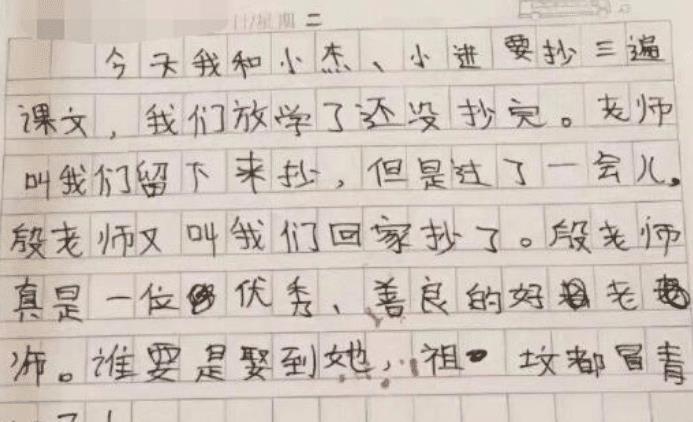 日/星期二
今天我和小杰、小进要抄三遍
课文，我们放学了还没抄完。老师
叫我们留下来抄，但是过了一会儿。
殷老师又叫我们回家抄了。殷老师
真是一位优秀、善良的好老
师。谁要是娶到她，祖坟都冒青